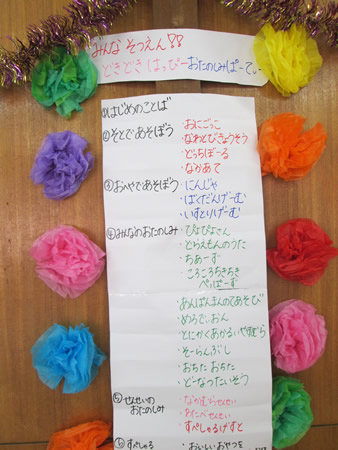 みんな そつえん!!
どきどき はっぴー おたのしみぱーてぃー
①はじめのことば
②そとであそぼう
・おにごっこ
・なわとびきょうそう
・どっちぼーる
・なかあて
③おへやであそぼう
・にんじゃ
・ばくだんげーむ
・いすとりげーむ
④みんなのおたのしみ
・ぴよぴよさん
・どらえもんのうた
・ちあーず
・ころころちきちきぺっぱーず
・あんぱんまんのてあそび
・めろでぃおん
・とにかくあかるいやすむら
・そーらんぶし
・おちた おちた
・どーなつたいそう
⑤せんせいのおたのしみ
・なかむらせんせい
・わたべせんせい
・すぺしゃるげすと
⑥すぺしゃる
・おいしいおやつを